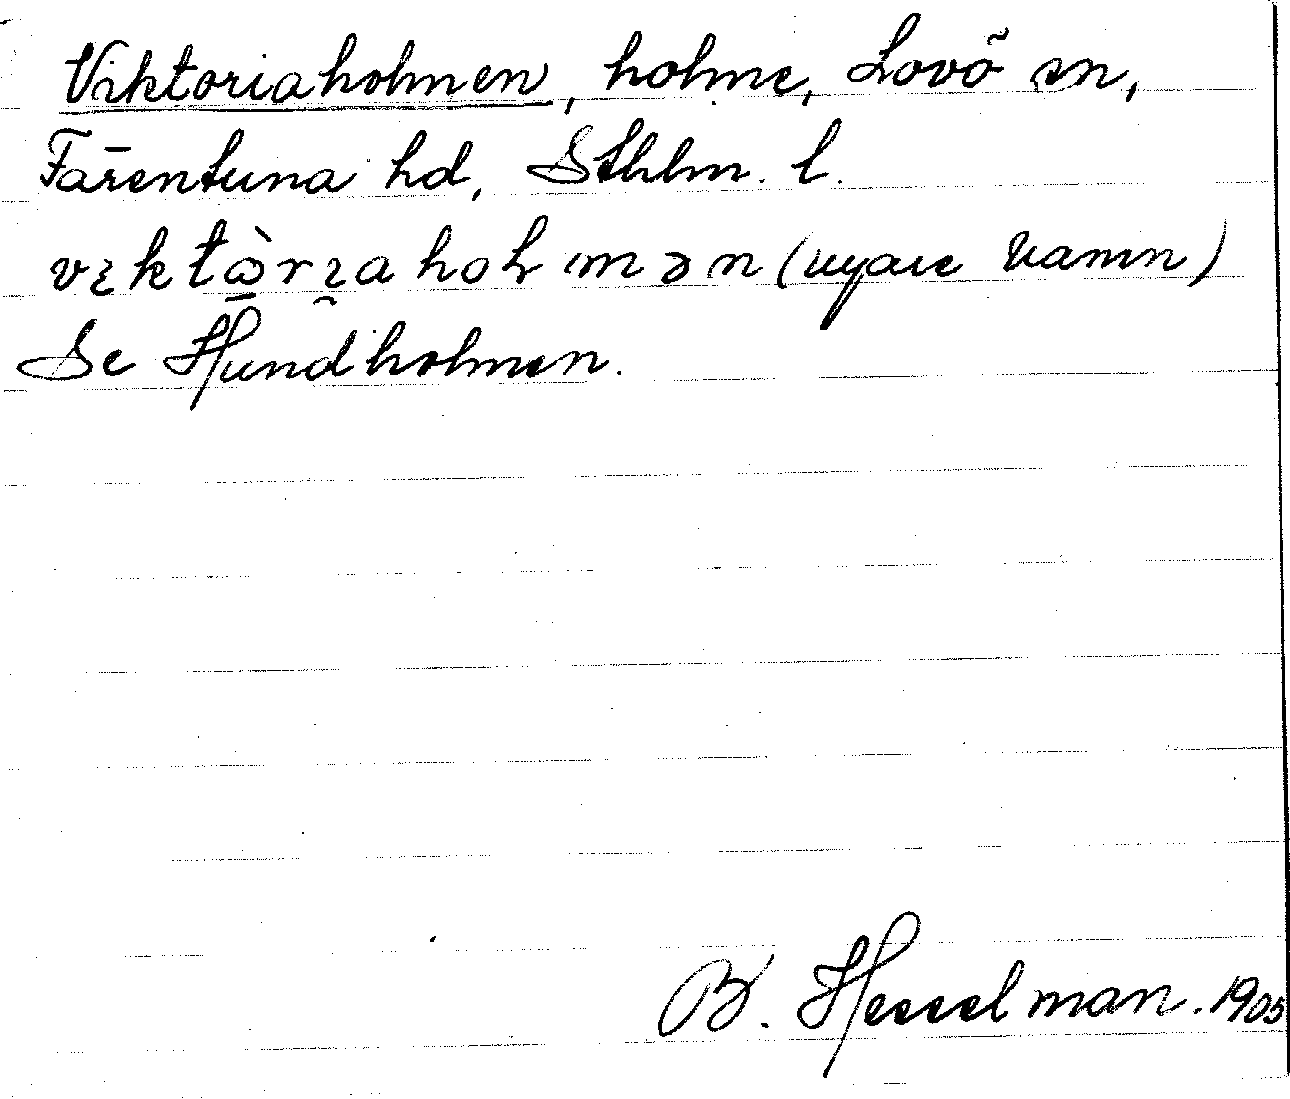 Viktoriaholmen, holme, Lovö sn,
Färentuna hd, Sthlm. l.
vɩktὼrɩaholmən (nyare namn)
Se Hundholmen.
B. Hesselman. 1905